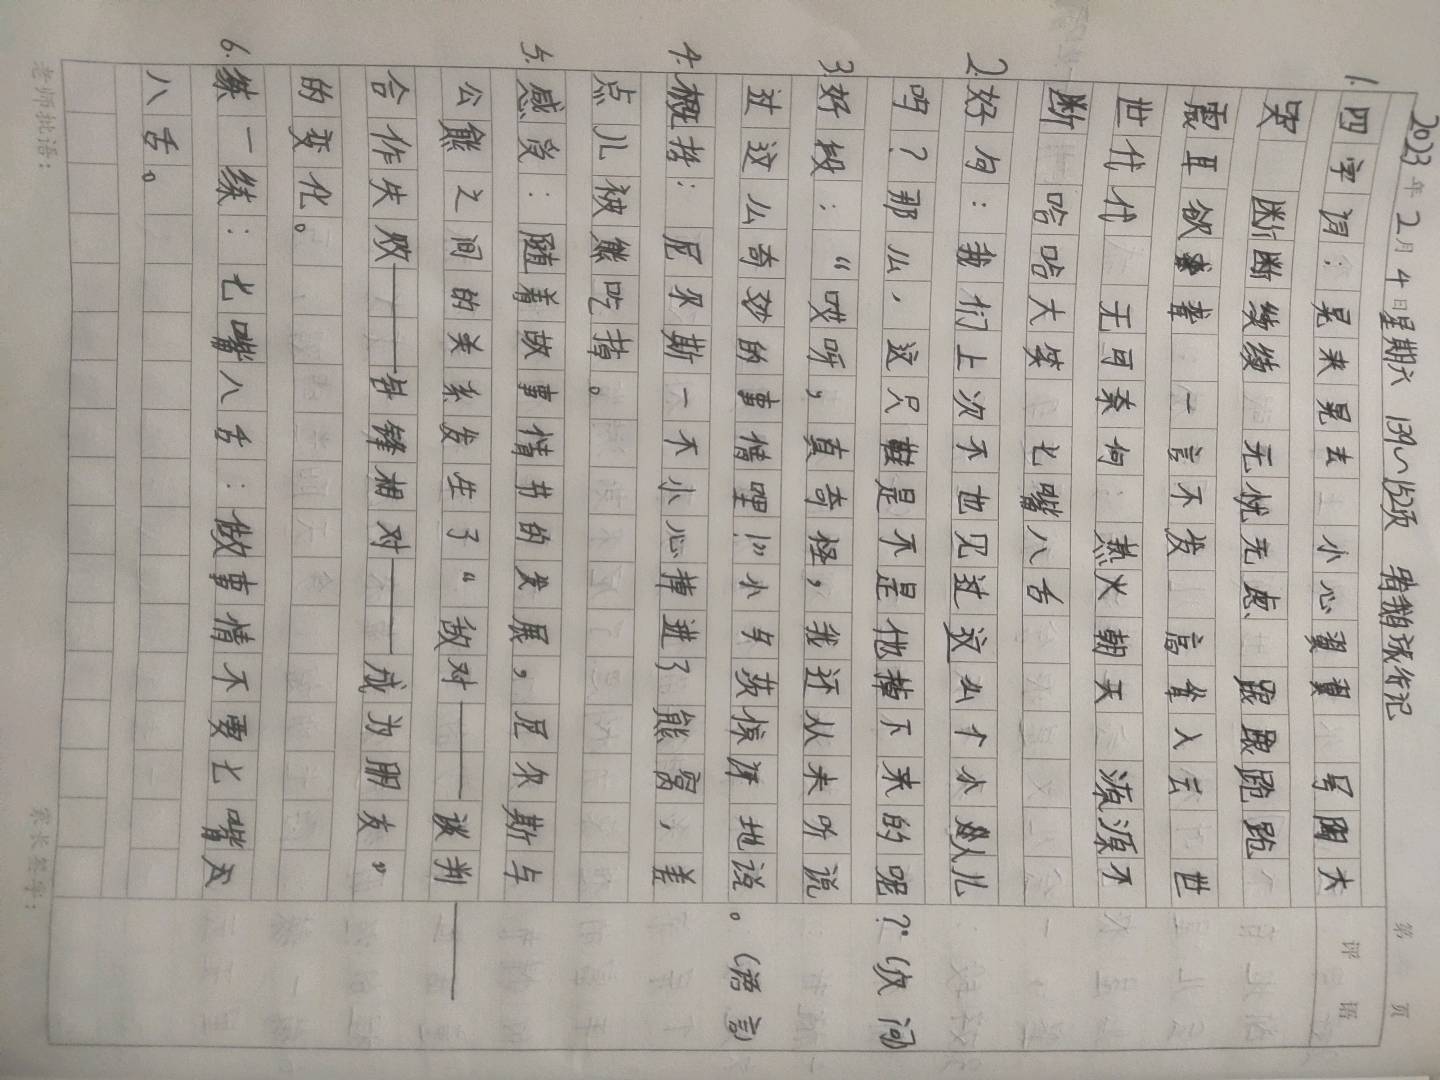 2023年2月4日星期六 139~152页 骑鹅旅行记
第 页
1.四字词：晃来晃去 小心翼翼 号啕大
哭 断断续续 无忧无虑 跟跟跄跄
震耳欲聋 一言不发 高耸入云 世
世代代 无可奈何 热火朝天 源源不
断 哈哈大笑 七嘴八舌
2.好句：我们上次不也见过这么个小人儿
吗？那么，这只鞋是不是他掉下来的呢？（仅问）
3.好段：“哎呀，真奇怪，我还从未听说
过这么奇妙的事情哩！”小男孩惊讶地说。（语言）
4.概括：尼尔斯一不小心掉进了熊窝，差
点儿被熊吃掉。
5.感受：随着故事情节的发展，尼尔斯与
公熊之间的关系发生了“敌对——谈判——
合作失败——针锋相对——成为朋友”
的变化。
6.练一练：七嘴八舌：做事情不要七嘴
八舌。
评语
老师批语：
家长签字：